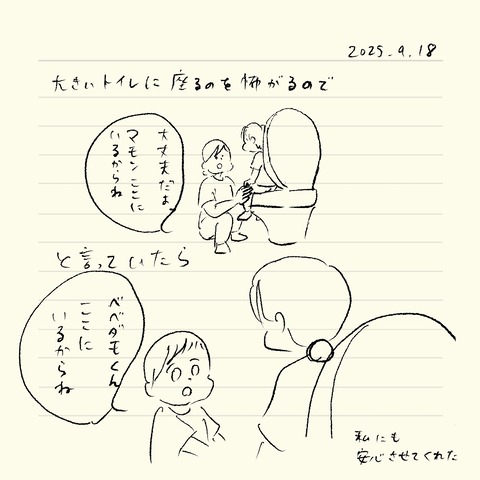 2025.9.18
大きいトイレに座るのを怖がるので
大丈夫だよ
マモンここに
いるからね
と言っていたら
べべダモくん
ここに
いるからね
私にも
安心させてくれた